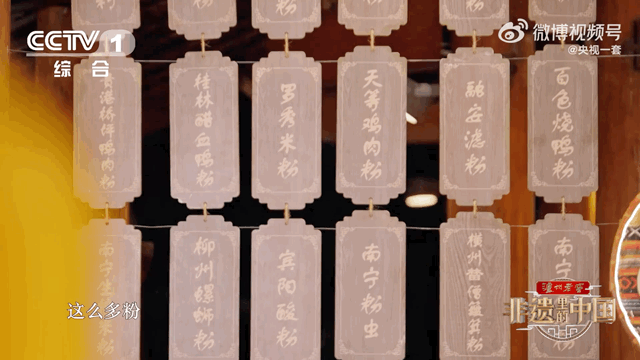 CCTV 1
综合
微博视频号
@央视一套
桥圩鸭肉粉
桂林醋血鸭粉
罗秀米粉
天等鸡肉粉
融安滤粉
百色烧鸭粉
南宁生
柳州螺蛳粉
宾阳酸粉
南宁粉虫
横州
粉
南宁
这么多粉
泸州老窖
非遗里的中国